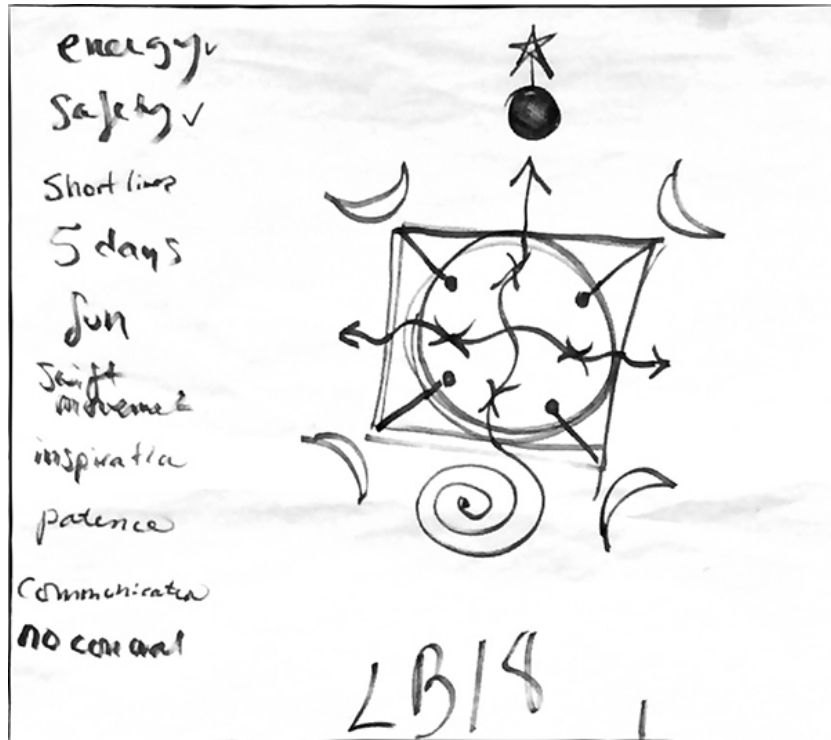 energy ✓
Safety ✓
Short lines
5 days
fun
swift
movement
inspiration
patence
Communication
no con
LB/18